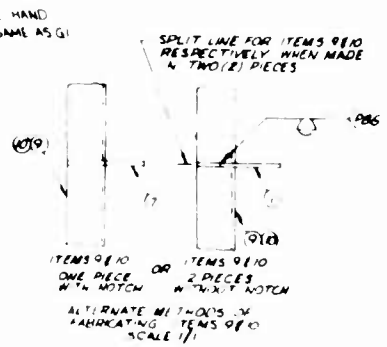 HAND
SAME AS G1
SPLIT LINE FOR ITEMS 9&10
RESPECTIVELY WHEN MADE
TWO (2) PIECES
(10)(9)
(9)(10)
ITEMS 9&10
ONE PIECE
WITH NOTCH
OR
ITEMS 9&10
2 PIECES
WITHOUT NOTCH
ALTERNATE METHODS OF
FABRICATING ITEMS 9&10
SCALE 1/1